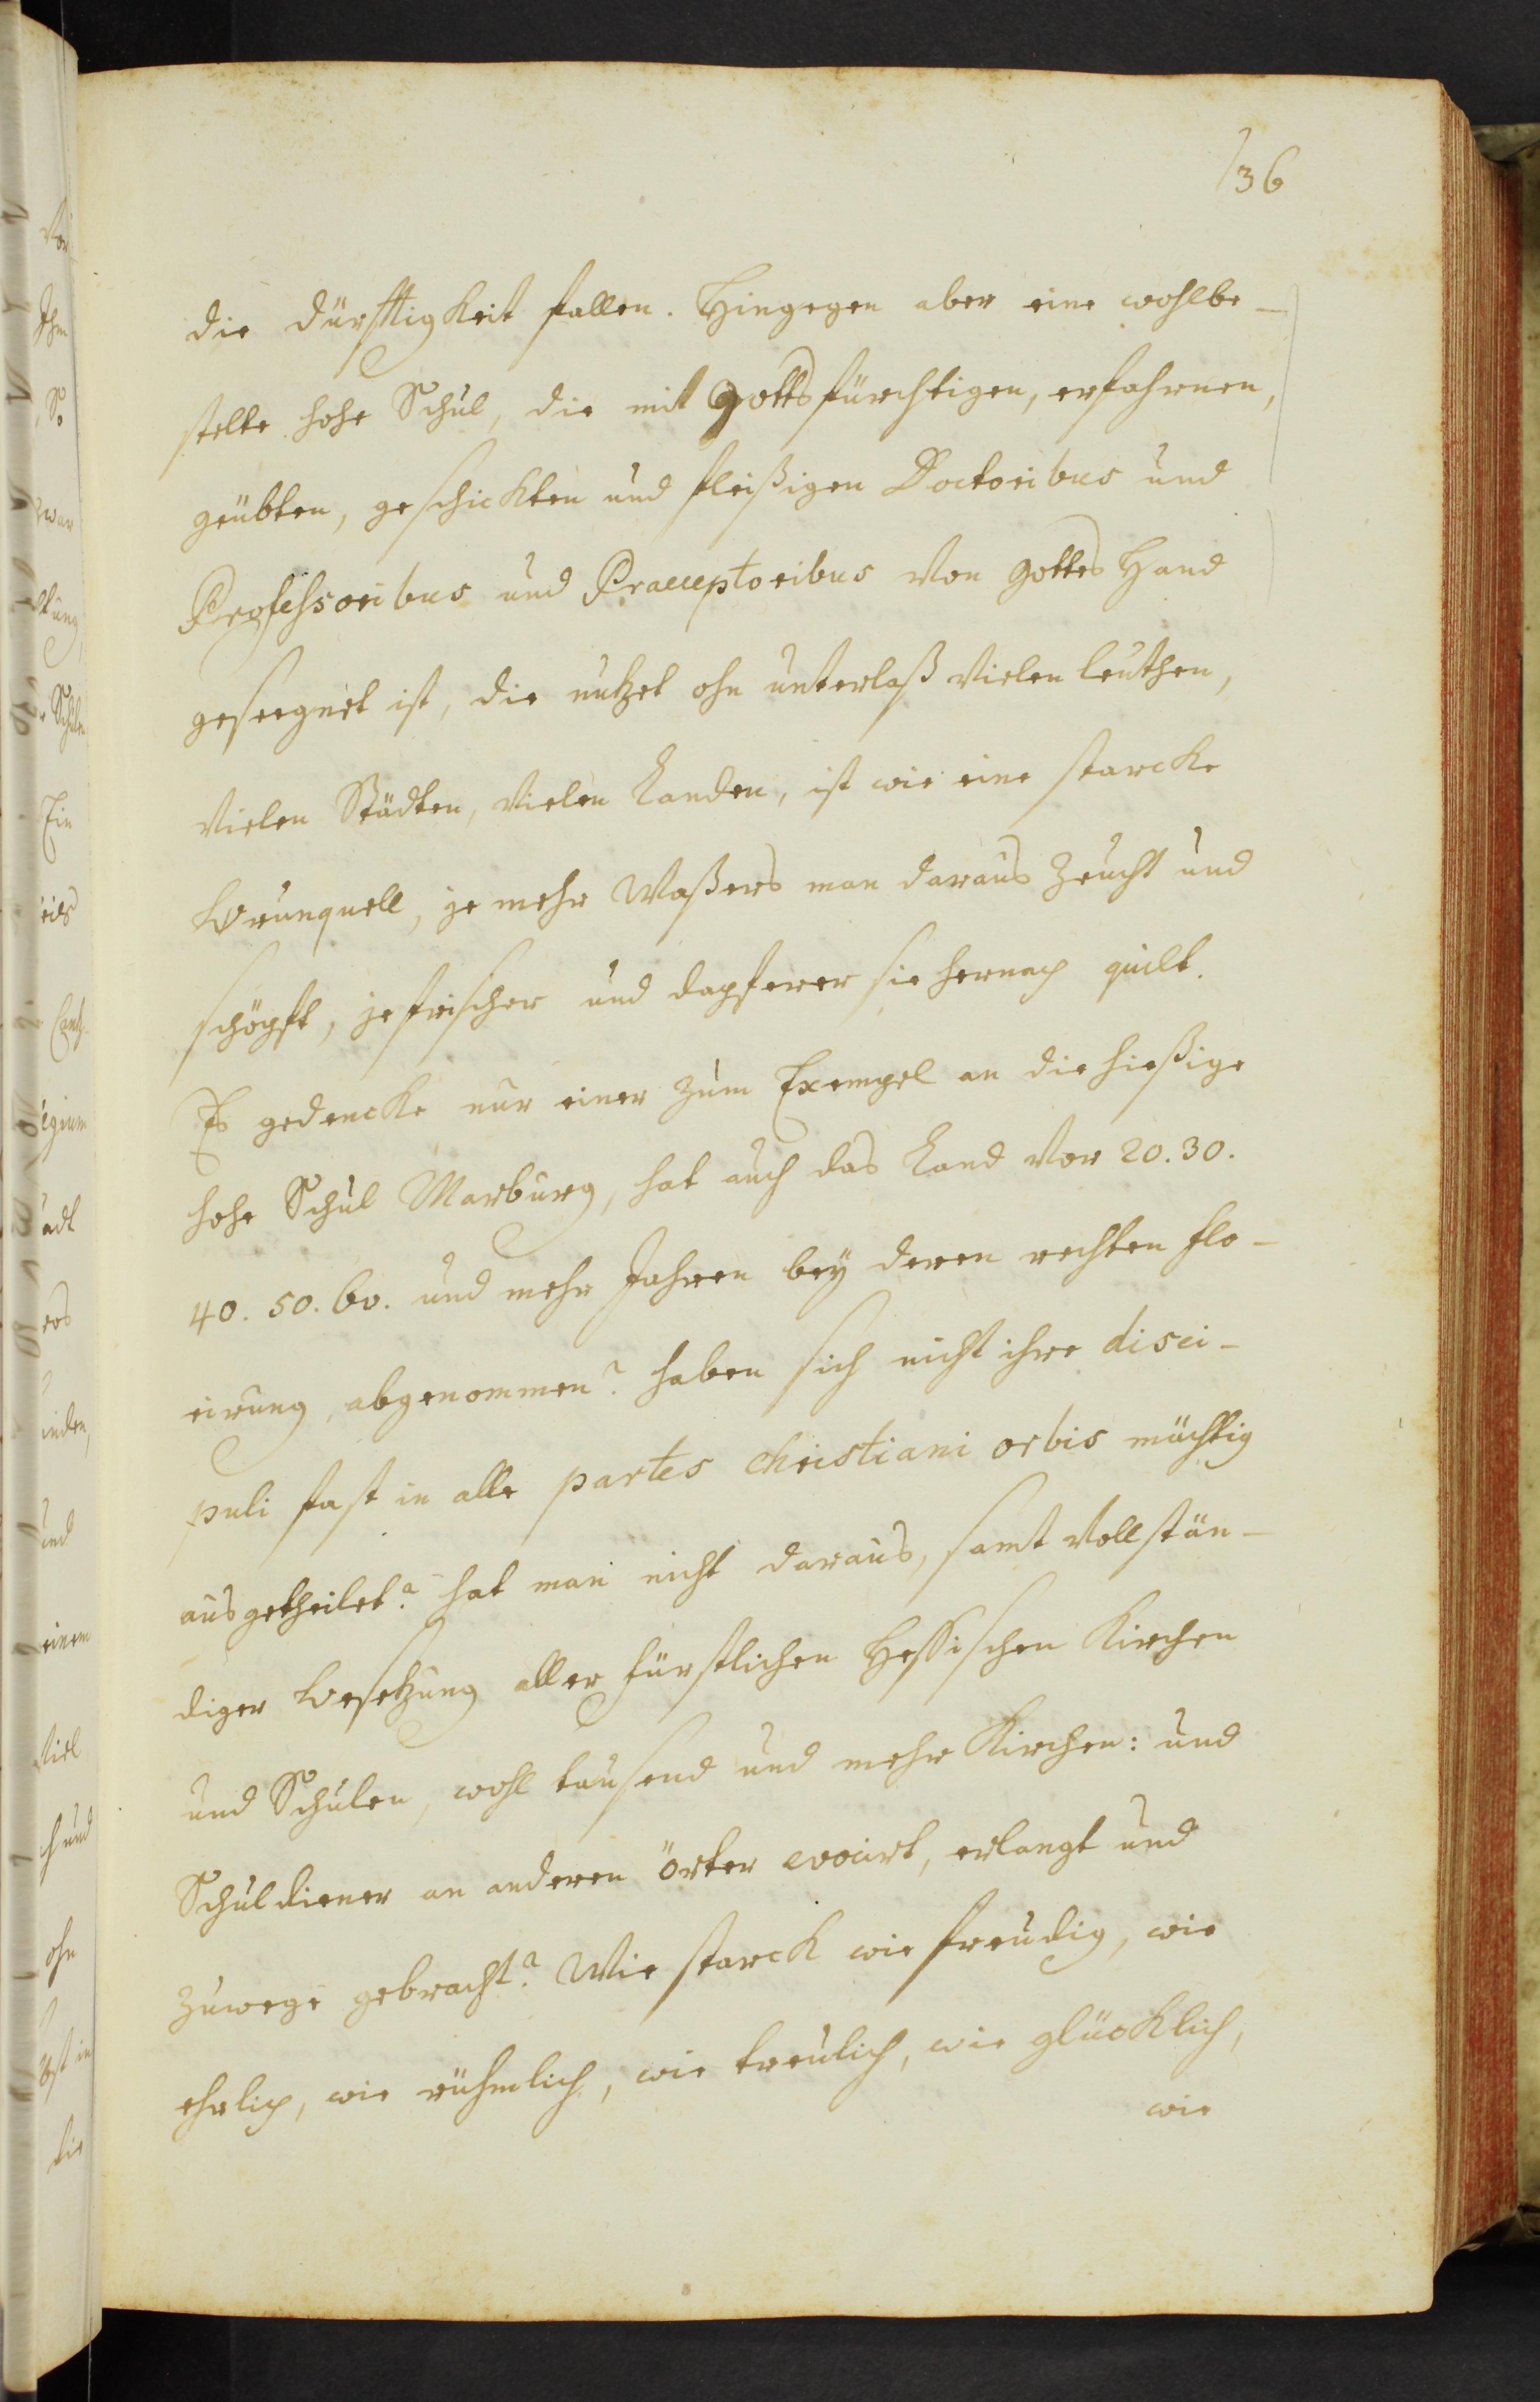 136
die dürfftigkeit fallen. Hingegen aber eine wohlbe-
stelte hohe Schul, die mit Gottsfürchtigen, erfahrnen,
geübten, geschickten und fleißigen Doctoribus und
Professoribus und Praeceptoribus von Gottes Hand
geseegnet ist, die nutzet ohn unterlaß vielen leuthen,
vielen Städten, vielen Landen, ist wie eine starcke
Brunquell, je mehr Waßers man daraus zeucht und
schöpft, je frischer und dapferer sie hernach quilt.
Es gedencke nur einer zum Exempel an die hießige
hohe Schul Marburg, hat auch das Land vor 20. 30.
40. 50. 60. und mehr Jahren bey deren rechten flo-
rirung, abgenommen? haben sich nicht ihre disci-
puli fast in alle partes christiani orbis mächtig
ausgetheilet? hat man nicht daraus, samt vollstän-
diger Besetzung aller fürstlichen Hessischen Kirchen
und Schulen, wohl tausend und mehr Kirchen: und
Schuldiener an anderen örter evocirt, erlangt und
zuwege gebracht? Wie starck wie freudig, wie
ehrlich, wie rühmlich, wie treulich, wie glücklich,
wie